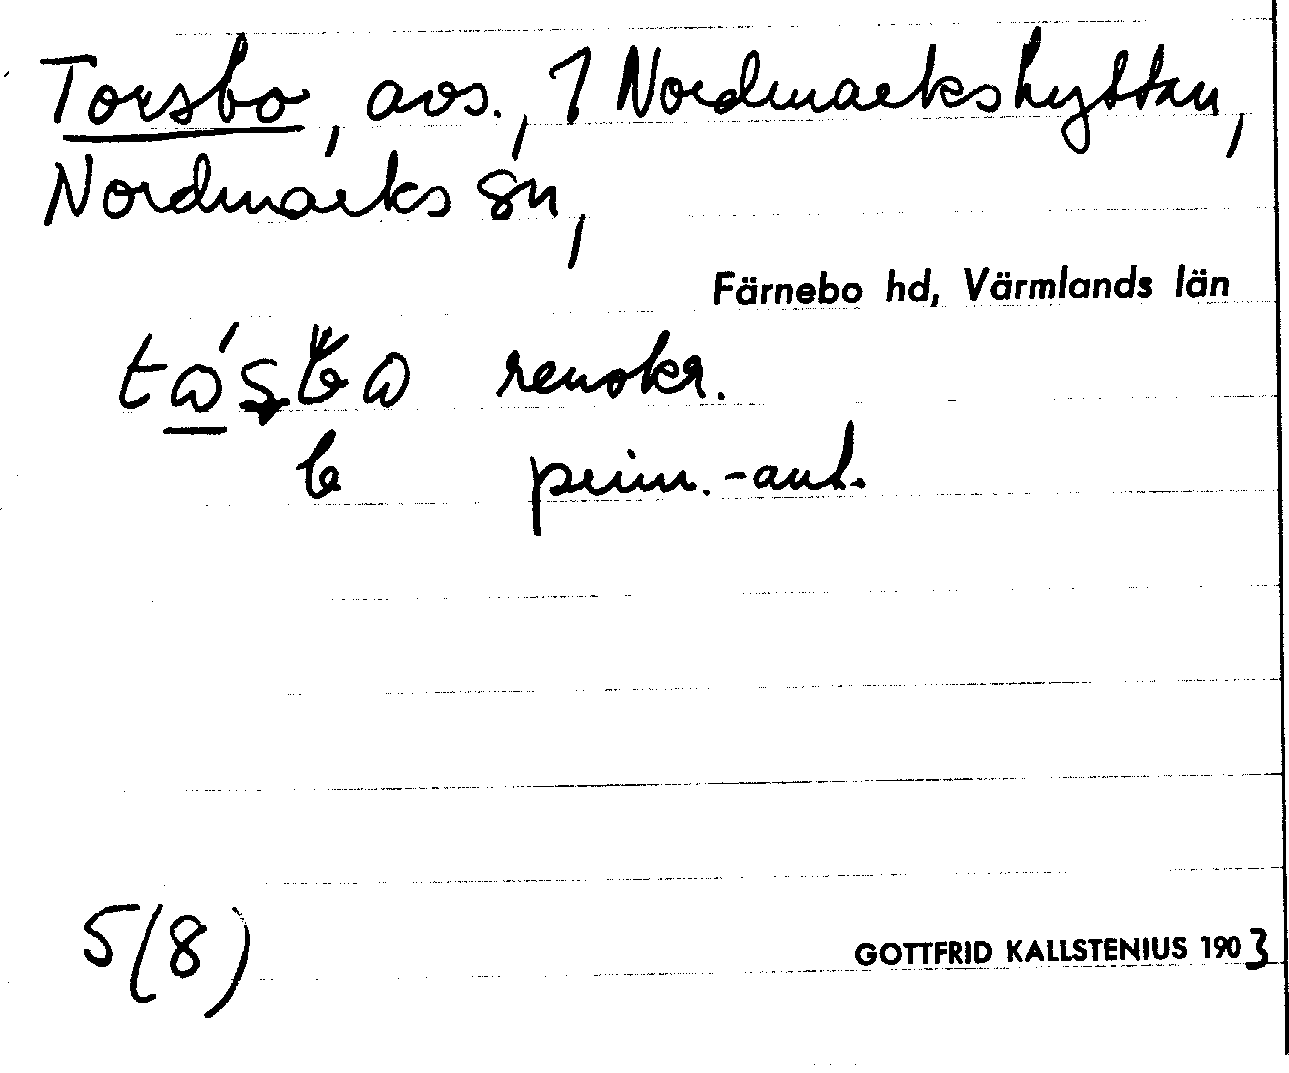 Torsbo, avs., 1 Nordmarkshyttan,
Nordmarks sn,
Färnebo hd, Värmlands län
renskr.
b prim.-ant.
5(8)
GOTTFRID KALLSTENIUS 1903